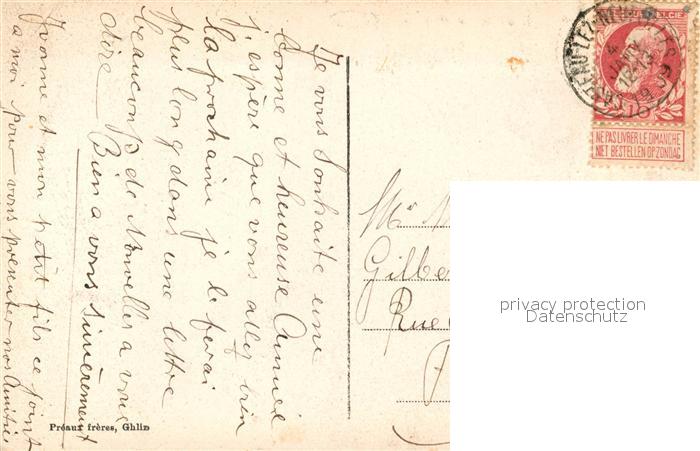 Je vous souhaite une
bonne et heureuse Année
j'espère que vous allez bien
la prochaine je le ferai
plus long dans une lettre
beaucoup de Nouvelles a vous
dire. Bien a vous sincèrement
Yvonne et mon petit fils ce joint
a moi pour vous presenter nos Amitiés
Préaux frères, Ghlin
NE PAS LIVRER LE DIMANCHE
NIET BESTELLEN OP ZONDAG
Gilbe
Rue
privacy protection
Datenschutz